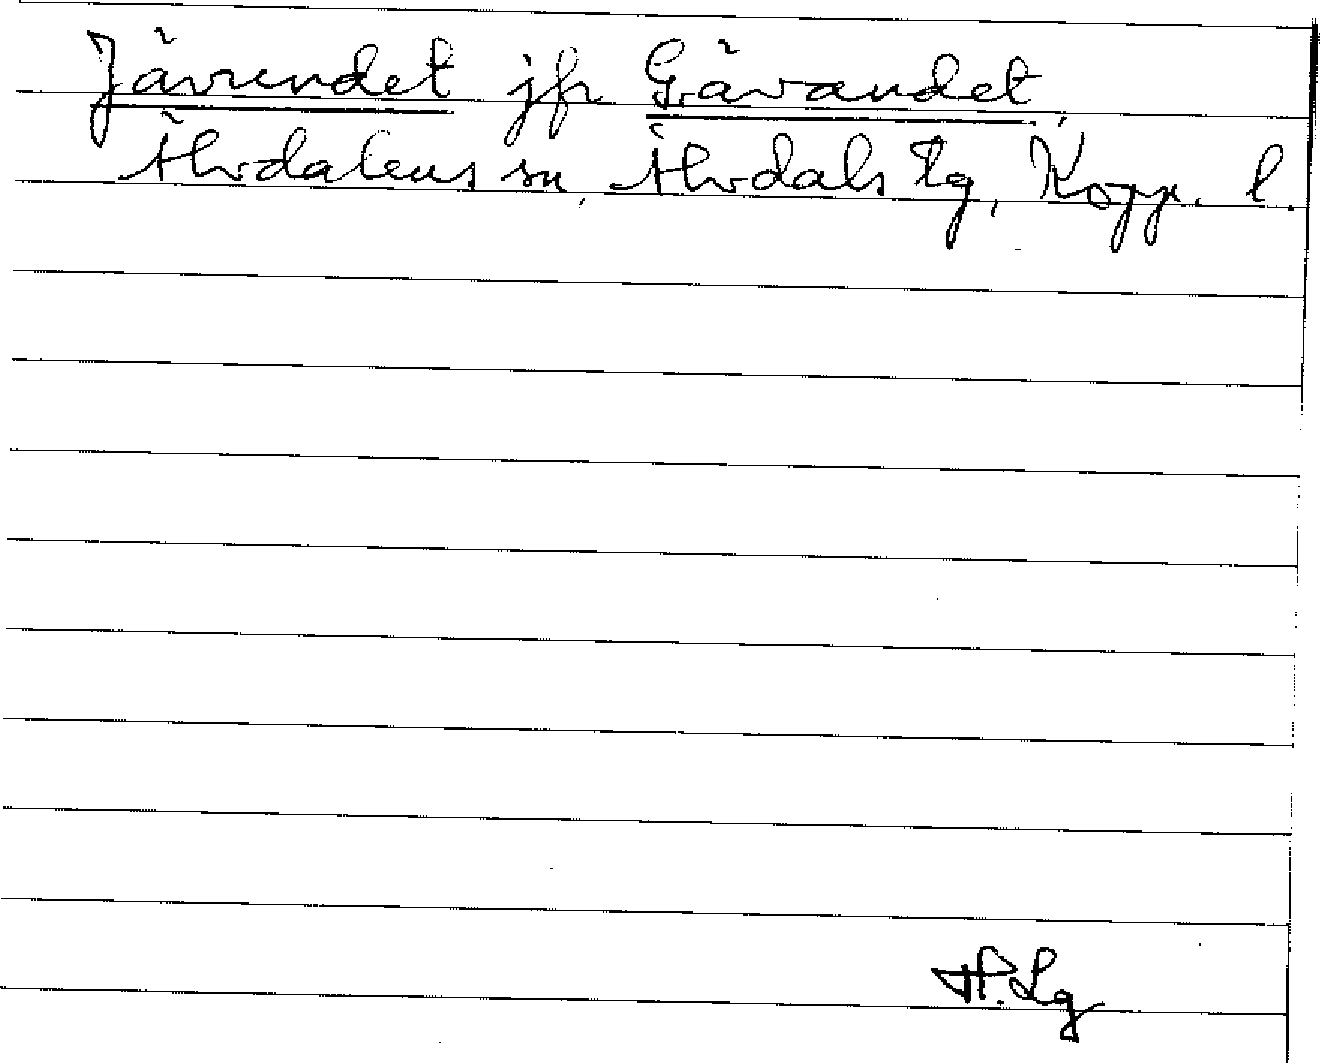 Jävrendet jfr Gävandet,
Älvdalens sn, Älvdals tg, Kopp. l.
H. Lg